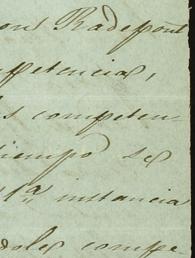 Radepont
petencias,
s competen
tiempo se
1ª instancia
doles compe-